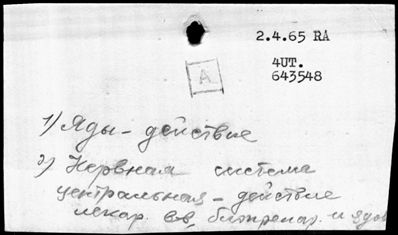 2.4.65 RA
4UT.
643548
A
1) Яды – действие
2) Нервная система
центральная – действие
лекар. в-в, биопрепар. и ядов